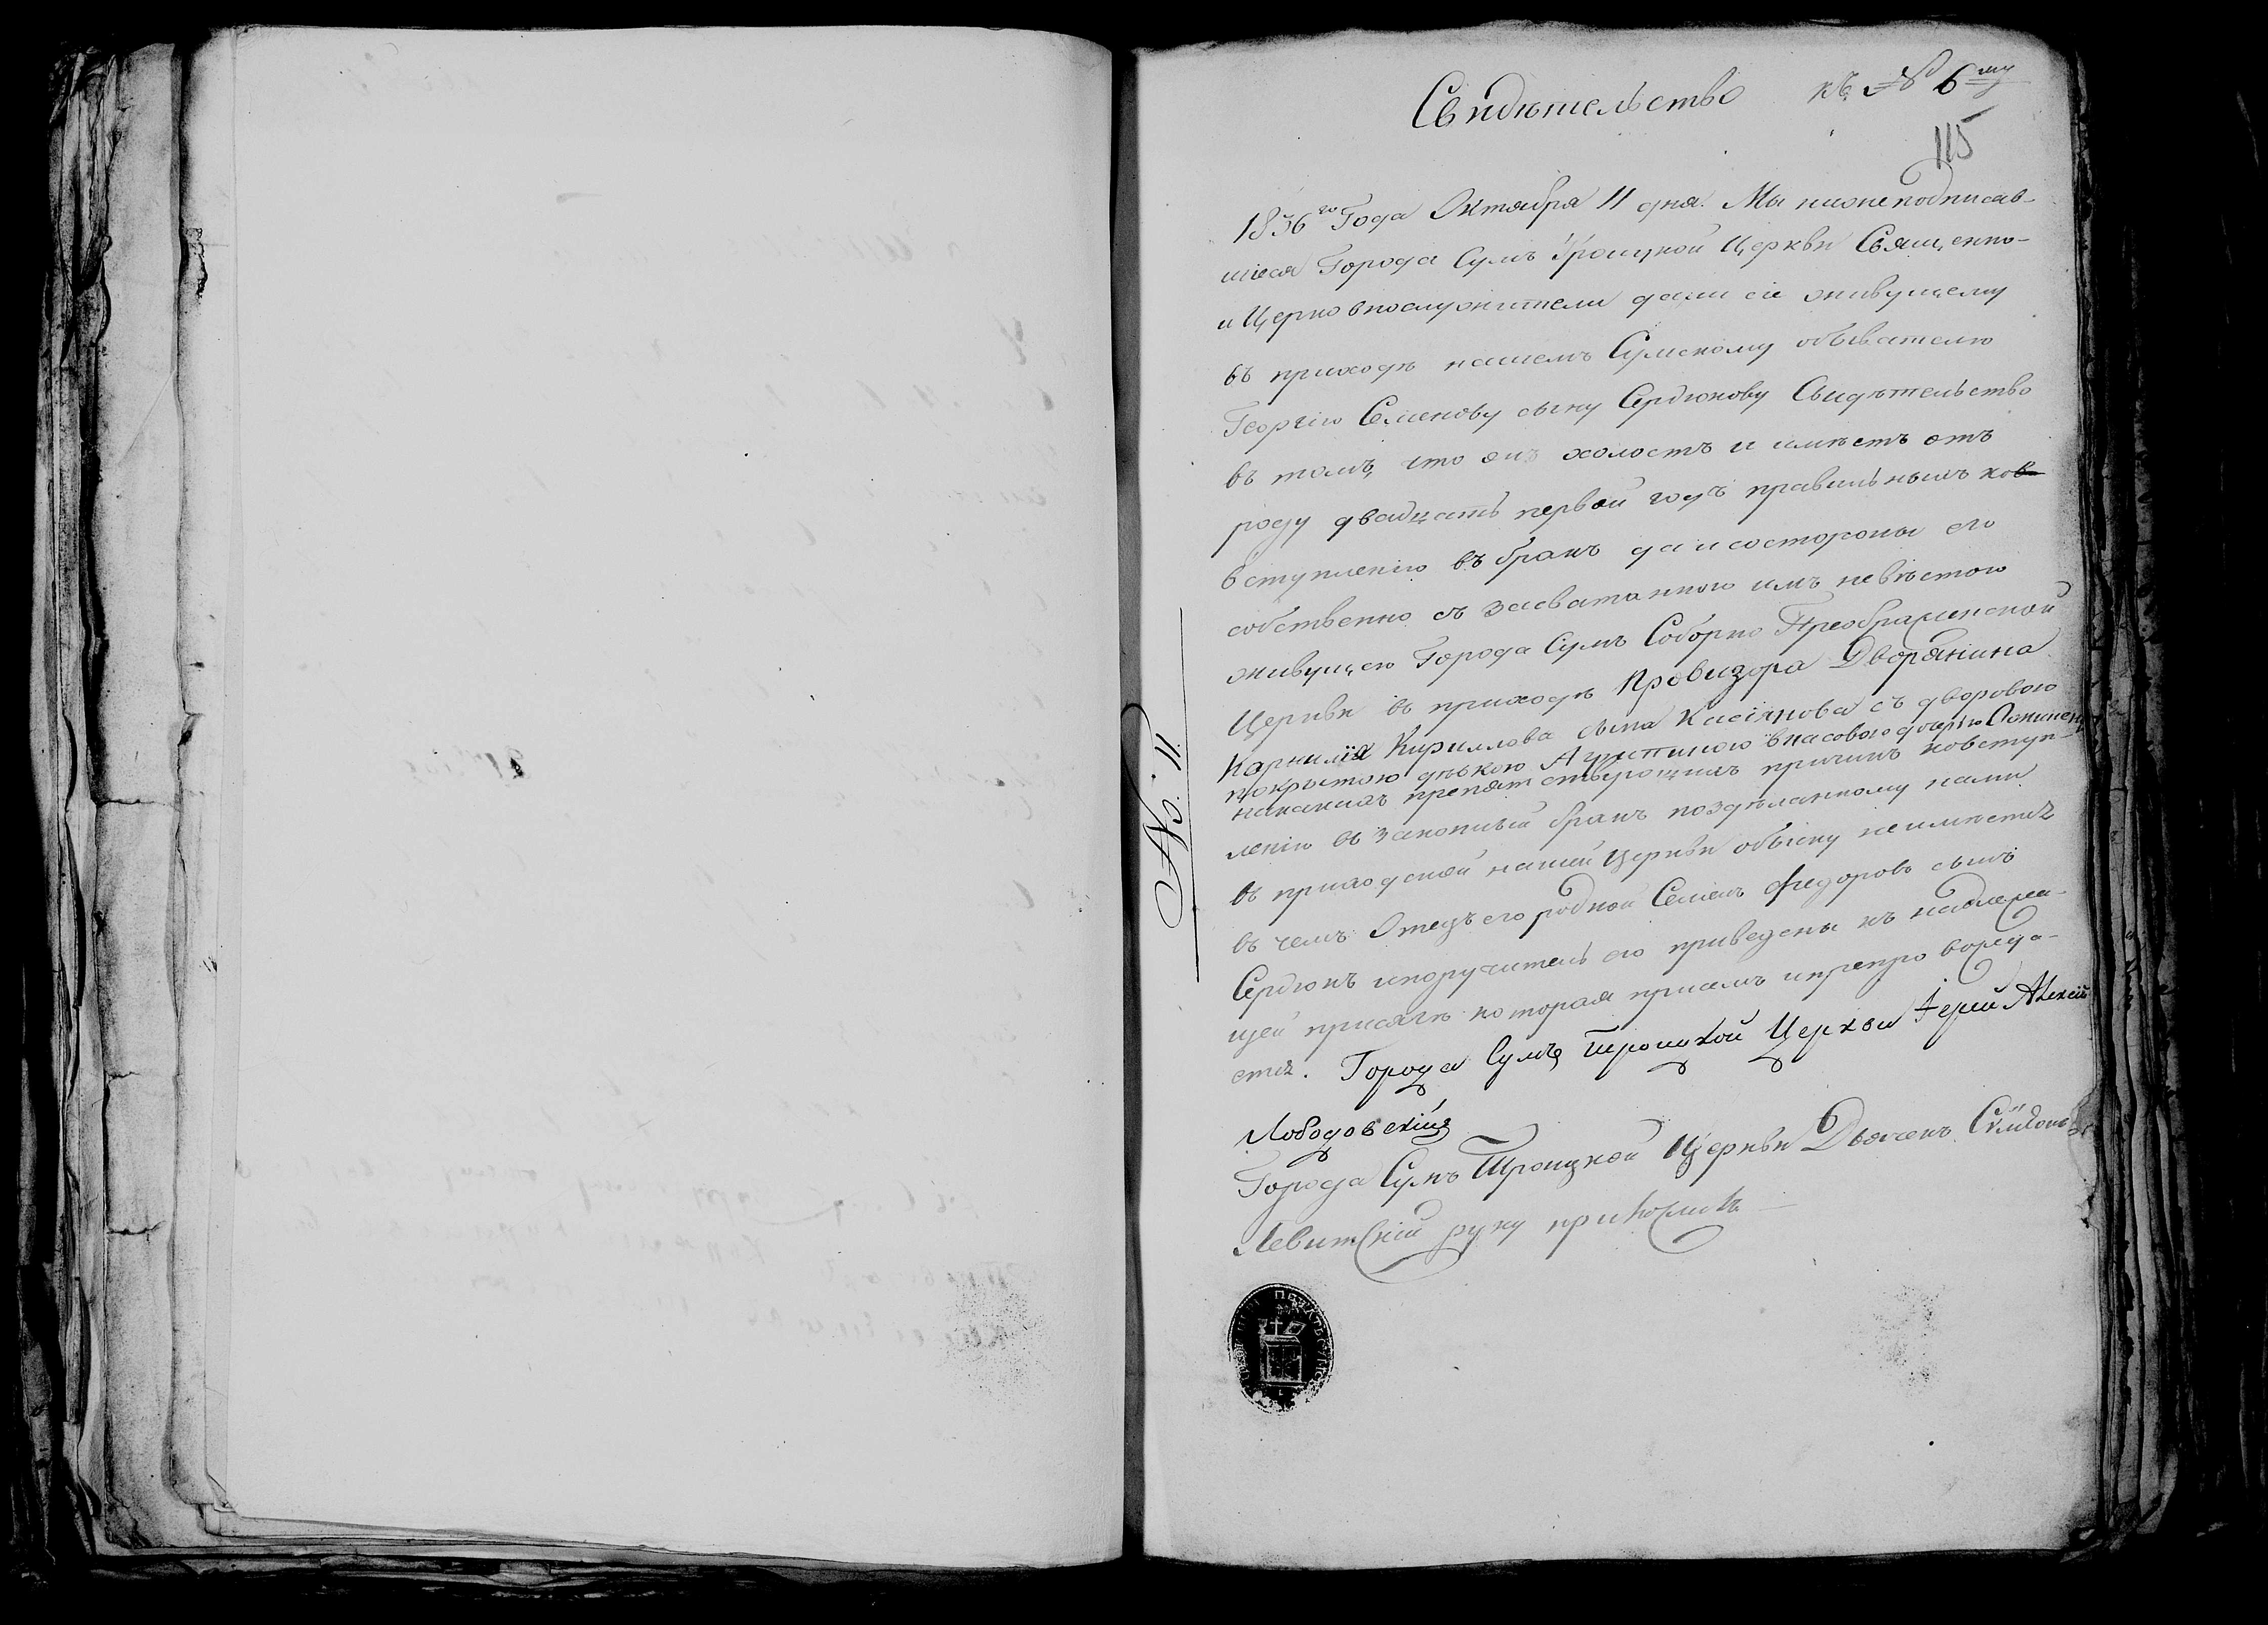 Свидѣтельство къ № 6му
115
1836го Года Октября 11 дня. Мы нижеподписав-
шіеся Города Сумъ Троицкой Церкви Священно-
и Церковнослужители дали сіе живущему
въ приходѣ нашемъ Сумскому обывателю
Георгію Семенову сыну Сердюкову Свидѣтельство
въ томъ, что онъ холостъ и имѣетъ отъ
роду двадцать первой годъ правильныхъ ков
вступленію въ бракъ да и состороны его
собственно съ засватанною имъ невѣстою
живущею Города Сумъ Соборно Преображенской
Церкви въ приходѣ Провизора Дворянина
Карнилія Кирилова сына Касіянова съ дворовою
покрыткою дѣвкою дочерью
никакихъ препятствующихъ причинъ ковступ-
ленію въ законный бракъ поздѣланному нами
въ приходской нашей Церкви обыску неимѣетъ
въ чемъ Отецъ его родной Семенъ Федоровъ сынъ
Сердюкъ ипоручитель его приведены къ надлежа-
щей присягѣ которая присемъ
етъ. Города Сумъ Троицкой Церкви Іерей Алексѣй
Лободовскій
Города Сумъ Троицкой Церкви Дьячекъ
Левитскій руку приложилъ
№ 11.